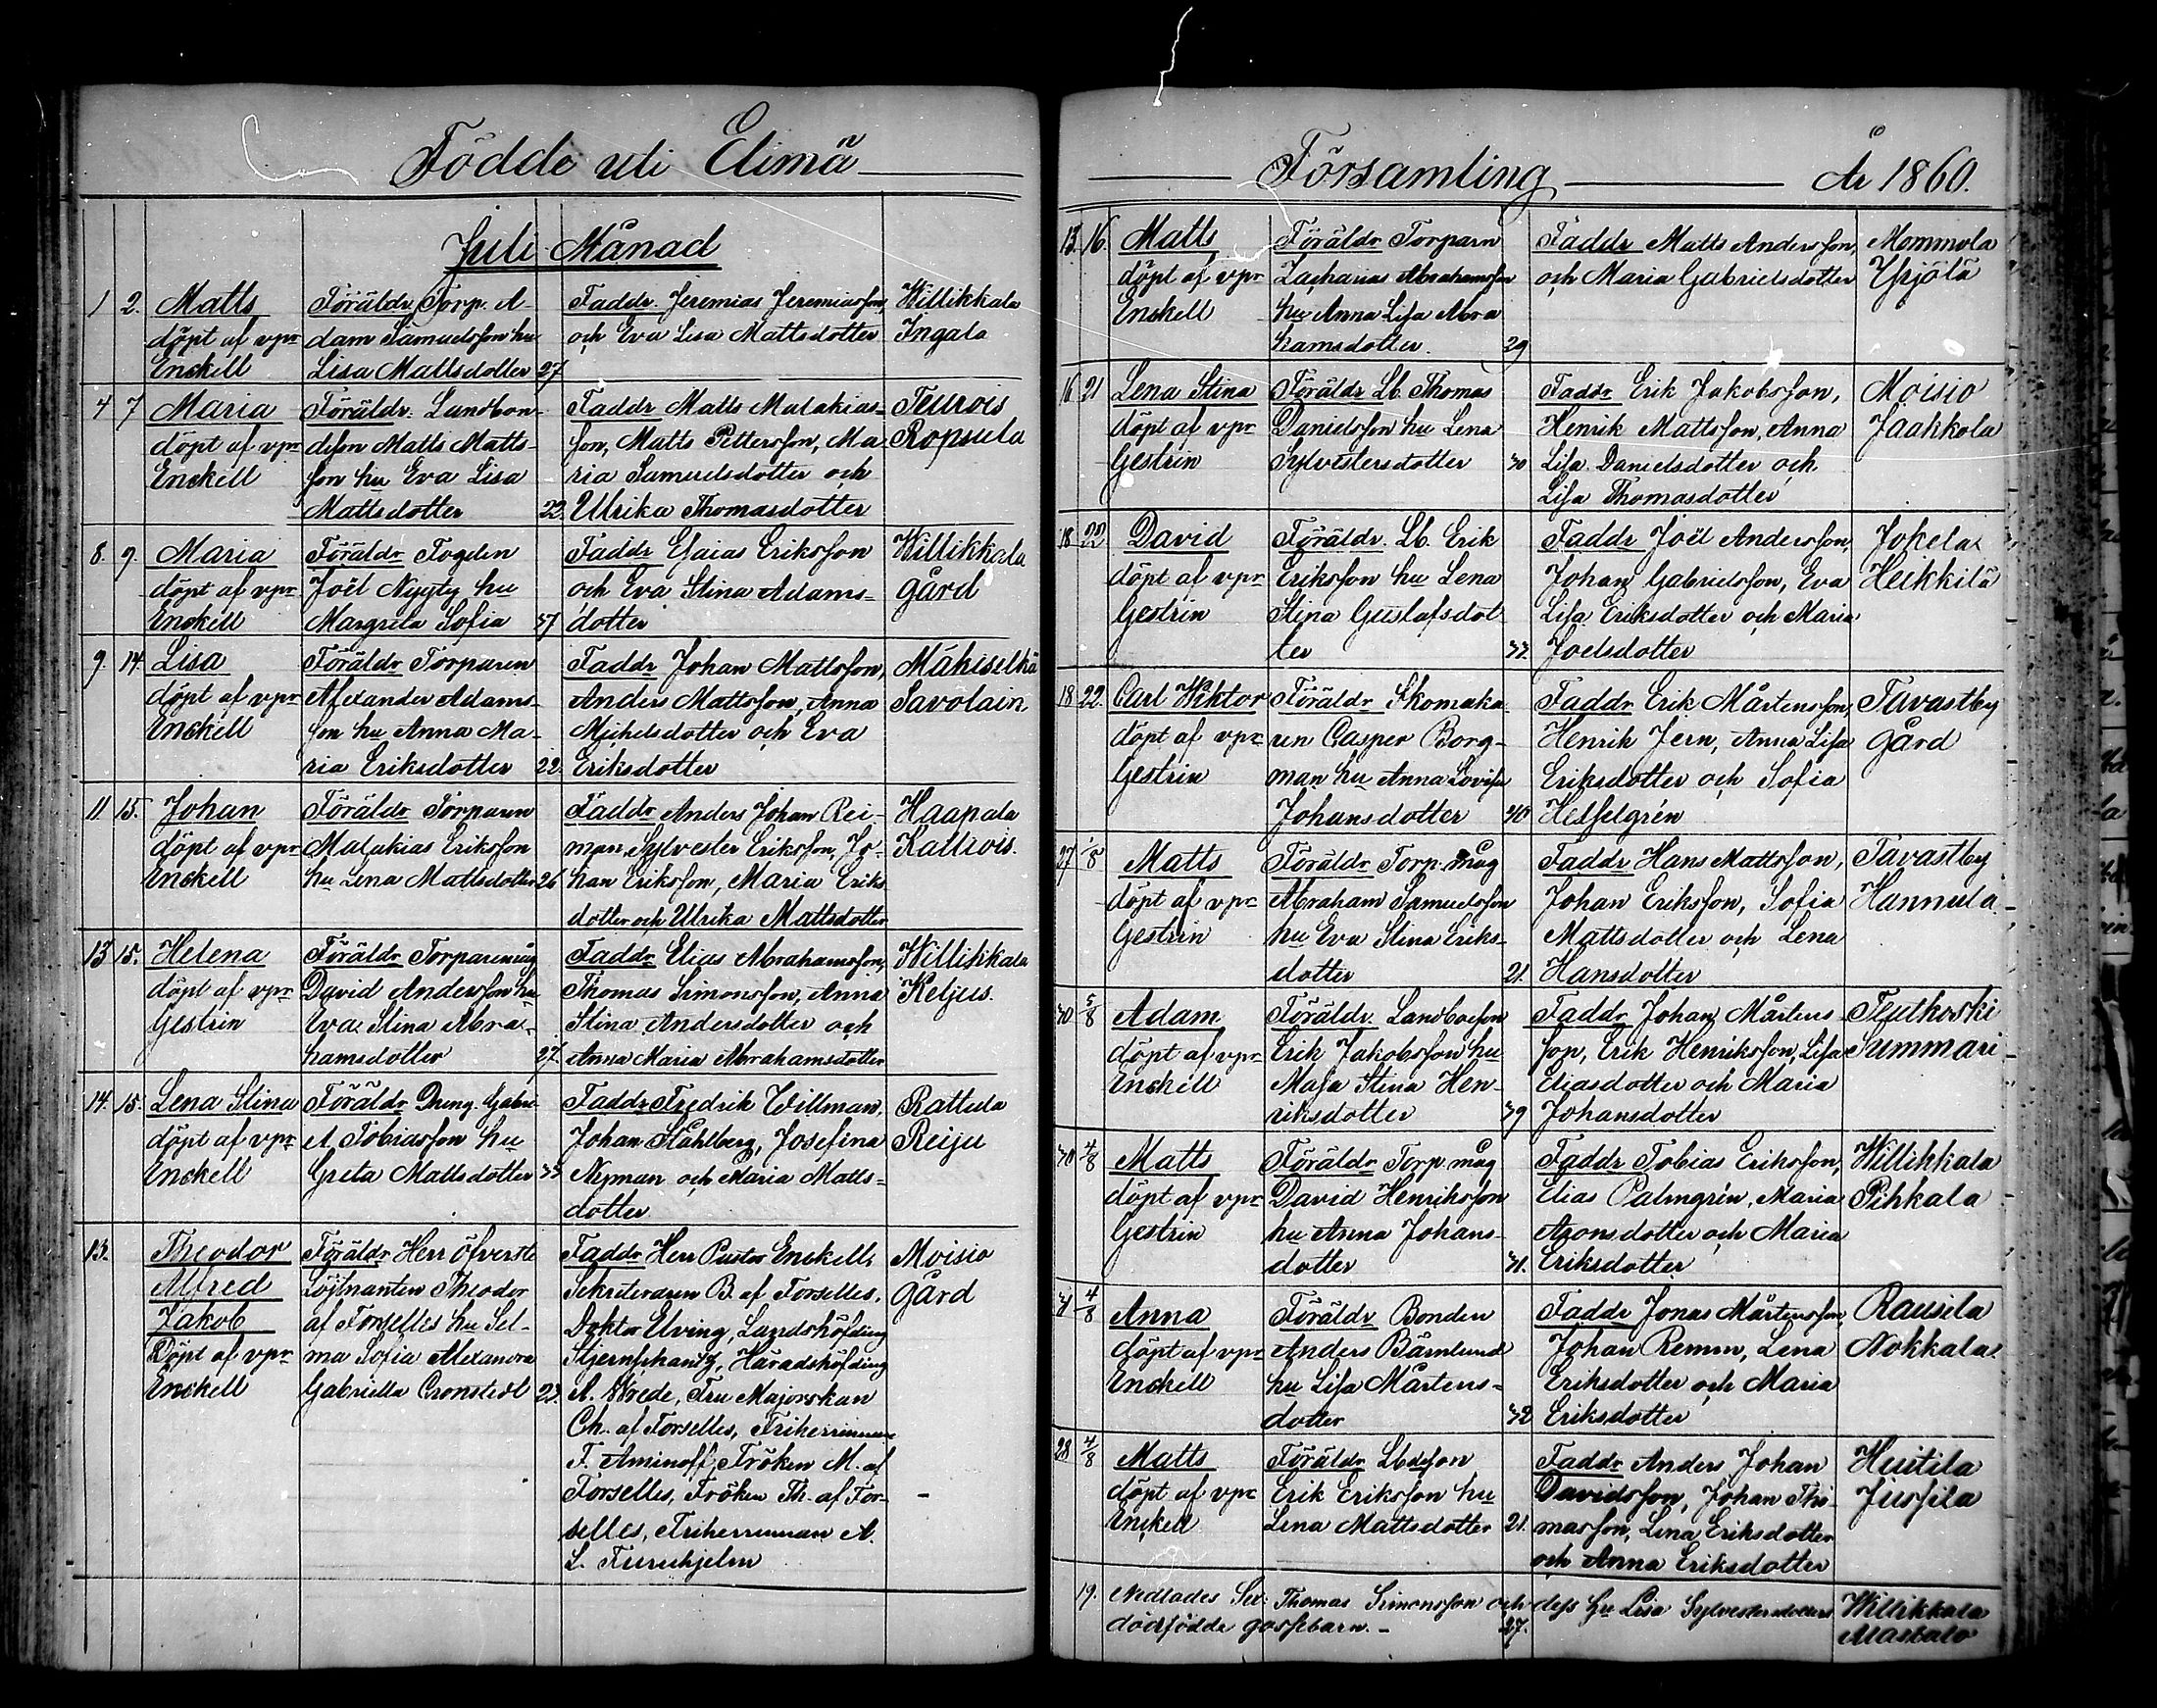 Födde uti Elimä
Juli Månad
1 2. Matts Föräldr. Torp. A- Faddr. Jeremias Jeremiasson, Willikkala
döpt af vpr dam Samuelsson hu och Eva Lisa Mattsdotter Ingala
Enckell Lisa Mattsdotter 27
4 7 Maria Föräldr. Landbon- Faddr Matts Malakias- Teurois
döpt af vpr desson Matts Matts- son, Matts Pettersson, Ma- Ropsula
Enckell son hu Eva Lisa ria Samuelsdotter och
Mattsdotter 22. Ulrika Thomasdotter
8. 9. Maria Föräldr Fogden Faddr Esaias Eriksson Willikkala
döpt af vpr Joël Nygty hu och Eva Stina Adams- gård
Enckell Margreta Sofia 37 dotter
9. 14. Lisa Föräldr Torparen Faddr Johan Mattsson, Mäkiselkä
döpt af vpr Alexander Adams- Anders Mattsson, Anna Savolain
Enckell son hu Anna Ma- Michelsdotter och Eva
ria Eriksdotter 22. Eriksdotter
11 15. Johan Föräldr Torparen Faddr Anders Johan Rei- Haapala
döpt af vpr Malakias Eriksson man, Sylvester Eriksson, Jo- Kallrois.
Enckell hu Lena Mattsdotter 26 han Eriksson, Maria Eriks
dotter och Ulrika Mattsdotter
13 15. Helena Föräldr Torparemåg Faddr Elias Abrahamsson, Willikkala
döpt af vpr David Andersson hu Thomas Simonsson, Anna Keljus.
Gestrin Eva Stina Abra- Stina Andersdotter och
hamsdotter 27. Anna Maria Abrahamsdotter
14. 15 Lena Stina Föräldr Dreng Gabri- Faddr Fredrik Willman, Rattula
döpt af vpr el Tobiasson hu Johan Ståhlberg, Josefina Reiju
Enckell Greta Mattsdotter 33 Nyman och Maria Matts-
dotter
13. Theodor Föräldr Herr Öfverste Faddr Herr Pastor Enckell, Moisio
Alfred Löjtnanten Theodor Sekreteraren B. af Forselles, gård
Jakob af Forselles hu Sel- Doktor Elving, Landshöfding
Döpt af vpr ma Sofia Alexandra Stjernschantz, Häradshöfding
Enckell Gabriella Cronstedt 23. A. Wrede, Fru Majorskan
Ch. af Forselles, Friherrinnan
F. Aminoff, Fröken M. af
Forselles, Fröken Th. af For-
selles, Friherrinnan A.
L. Furuhjelm
Församling År 1860.
13. 16. Matts Föräldr Torparn Faddr Matts Andersson, Mommola
döpt af vpr Zacharias Abrahamsson och Maria Gabrielsdotter Yrjölä
Enckell hu Anna Lisa Abra
hamsdotter. 29
16 21 Lena Stina Föräldr Lb. Thomas Faddr Erik Jakobsson, Moisio
döpt af vpr Danielsson hu Lena Henrik Mattsson, Anna Jaakkola
Gestrin Sylvestersdotter 30 Lisa Danielsdotter och
Lisa Thomasdotter
18 22 David Föräldr. Lb. Erik Faddr Joël Andersson, Jokela
döpt af vpr Eriksson hu Lena Johan Gabrielsson, Eva Heikkilä
Gestrin Stina Gustafsdot Lisa Eriksdotter och Maria
ter 33. Joelsdotter
18 22. Carl Viktor Föräldr Skomaka- Faddr Erik Mårtensson, Tavastby
döpt af vpr ren Casper Borg- Henrik Jern, Anna Lisa gård
Gestrin man hu Anna Lovisa Eriksdotter och Sofia
Johansdotter 40 Hesselgrén
27 1/8 Matts Föräldr Torp. måg Faddr Hans Mattsson, Tavastby
döpt af vpr Abraham Samuelsson Johan Eriksson, Sofia Hannula.
Gestrin hu Eva Stina Eriks- Mattsdotter och Lena
dotter 21. Hansdotter
30 5/8 Adam Föräldr. Landboeson Faddr Johan Mårtens- Teutkoski
döpt af vpr Erik Jakobsson hu son, Erik Henriksson, Lisa Summari
Enckell Maja Stina Hen- Eliasdotter och Maria
riksdotter 39 Johansdotter
30 4/8 Matts Föräldr Torp. måg Faddr Tobias Eriksson, Willikkala
döpt af vpr David Henriksson Elias Palmgrén, Maria Pihkala
Gestrin hu Anna Johans- Aronsdotter och Maria
dotter 31. Eriksdotter
31 4/8 Anna Föräldr Bonden Faddr Jonas Mårtensson, Rausila
döpt af vpr Anders Bärnlund Johan Remen, Lena Nokkala
Enckell hu Lisa Mårtens- Eriksdotter och Maria
dotter 32 Eriksdotter
28 4/8 Matts Föräldr Lbdeson Faddr Anders Johan Huitila
döpt af vpr Erik Eriksson hu Davidsson, Johan Tho- Jussila
Enckell Lena Mattsdotter 21. masson, Lena Eriksdotter
och Anna Eriksdotter
19. Nedlades Thomas Simonsson och dess hu Lisa Sylvestersdotters Willikkala
dödfödde gossebarn. - 27. Maskala